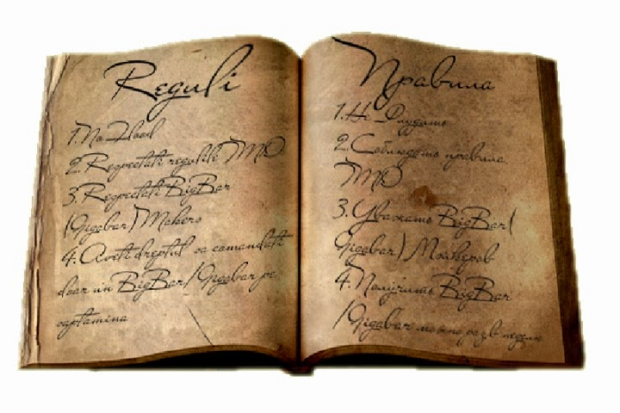 Reguli
1. No Flood
2. Respectati regulile TMD
3. Respectati BigBar
/Gigabar) Makers
4. Aveti dreptul sa comandati
doar un BigBar/Gigabar pe
saptamina
Правила
1. Не Флудить
2. Соблюдать правила
TMD
3. Уважать BigBar(
Gigabar) Мейкеров
4. Получить BigBar
/Gigabar можно раз в неделю